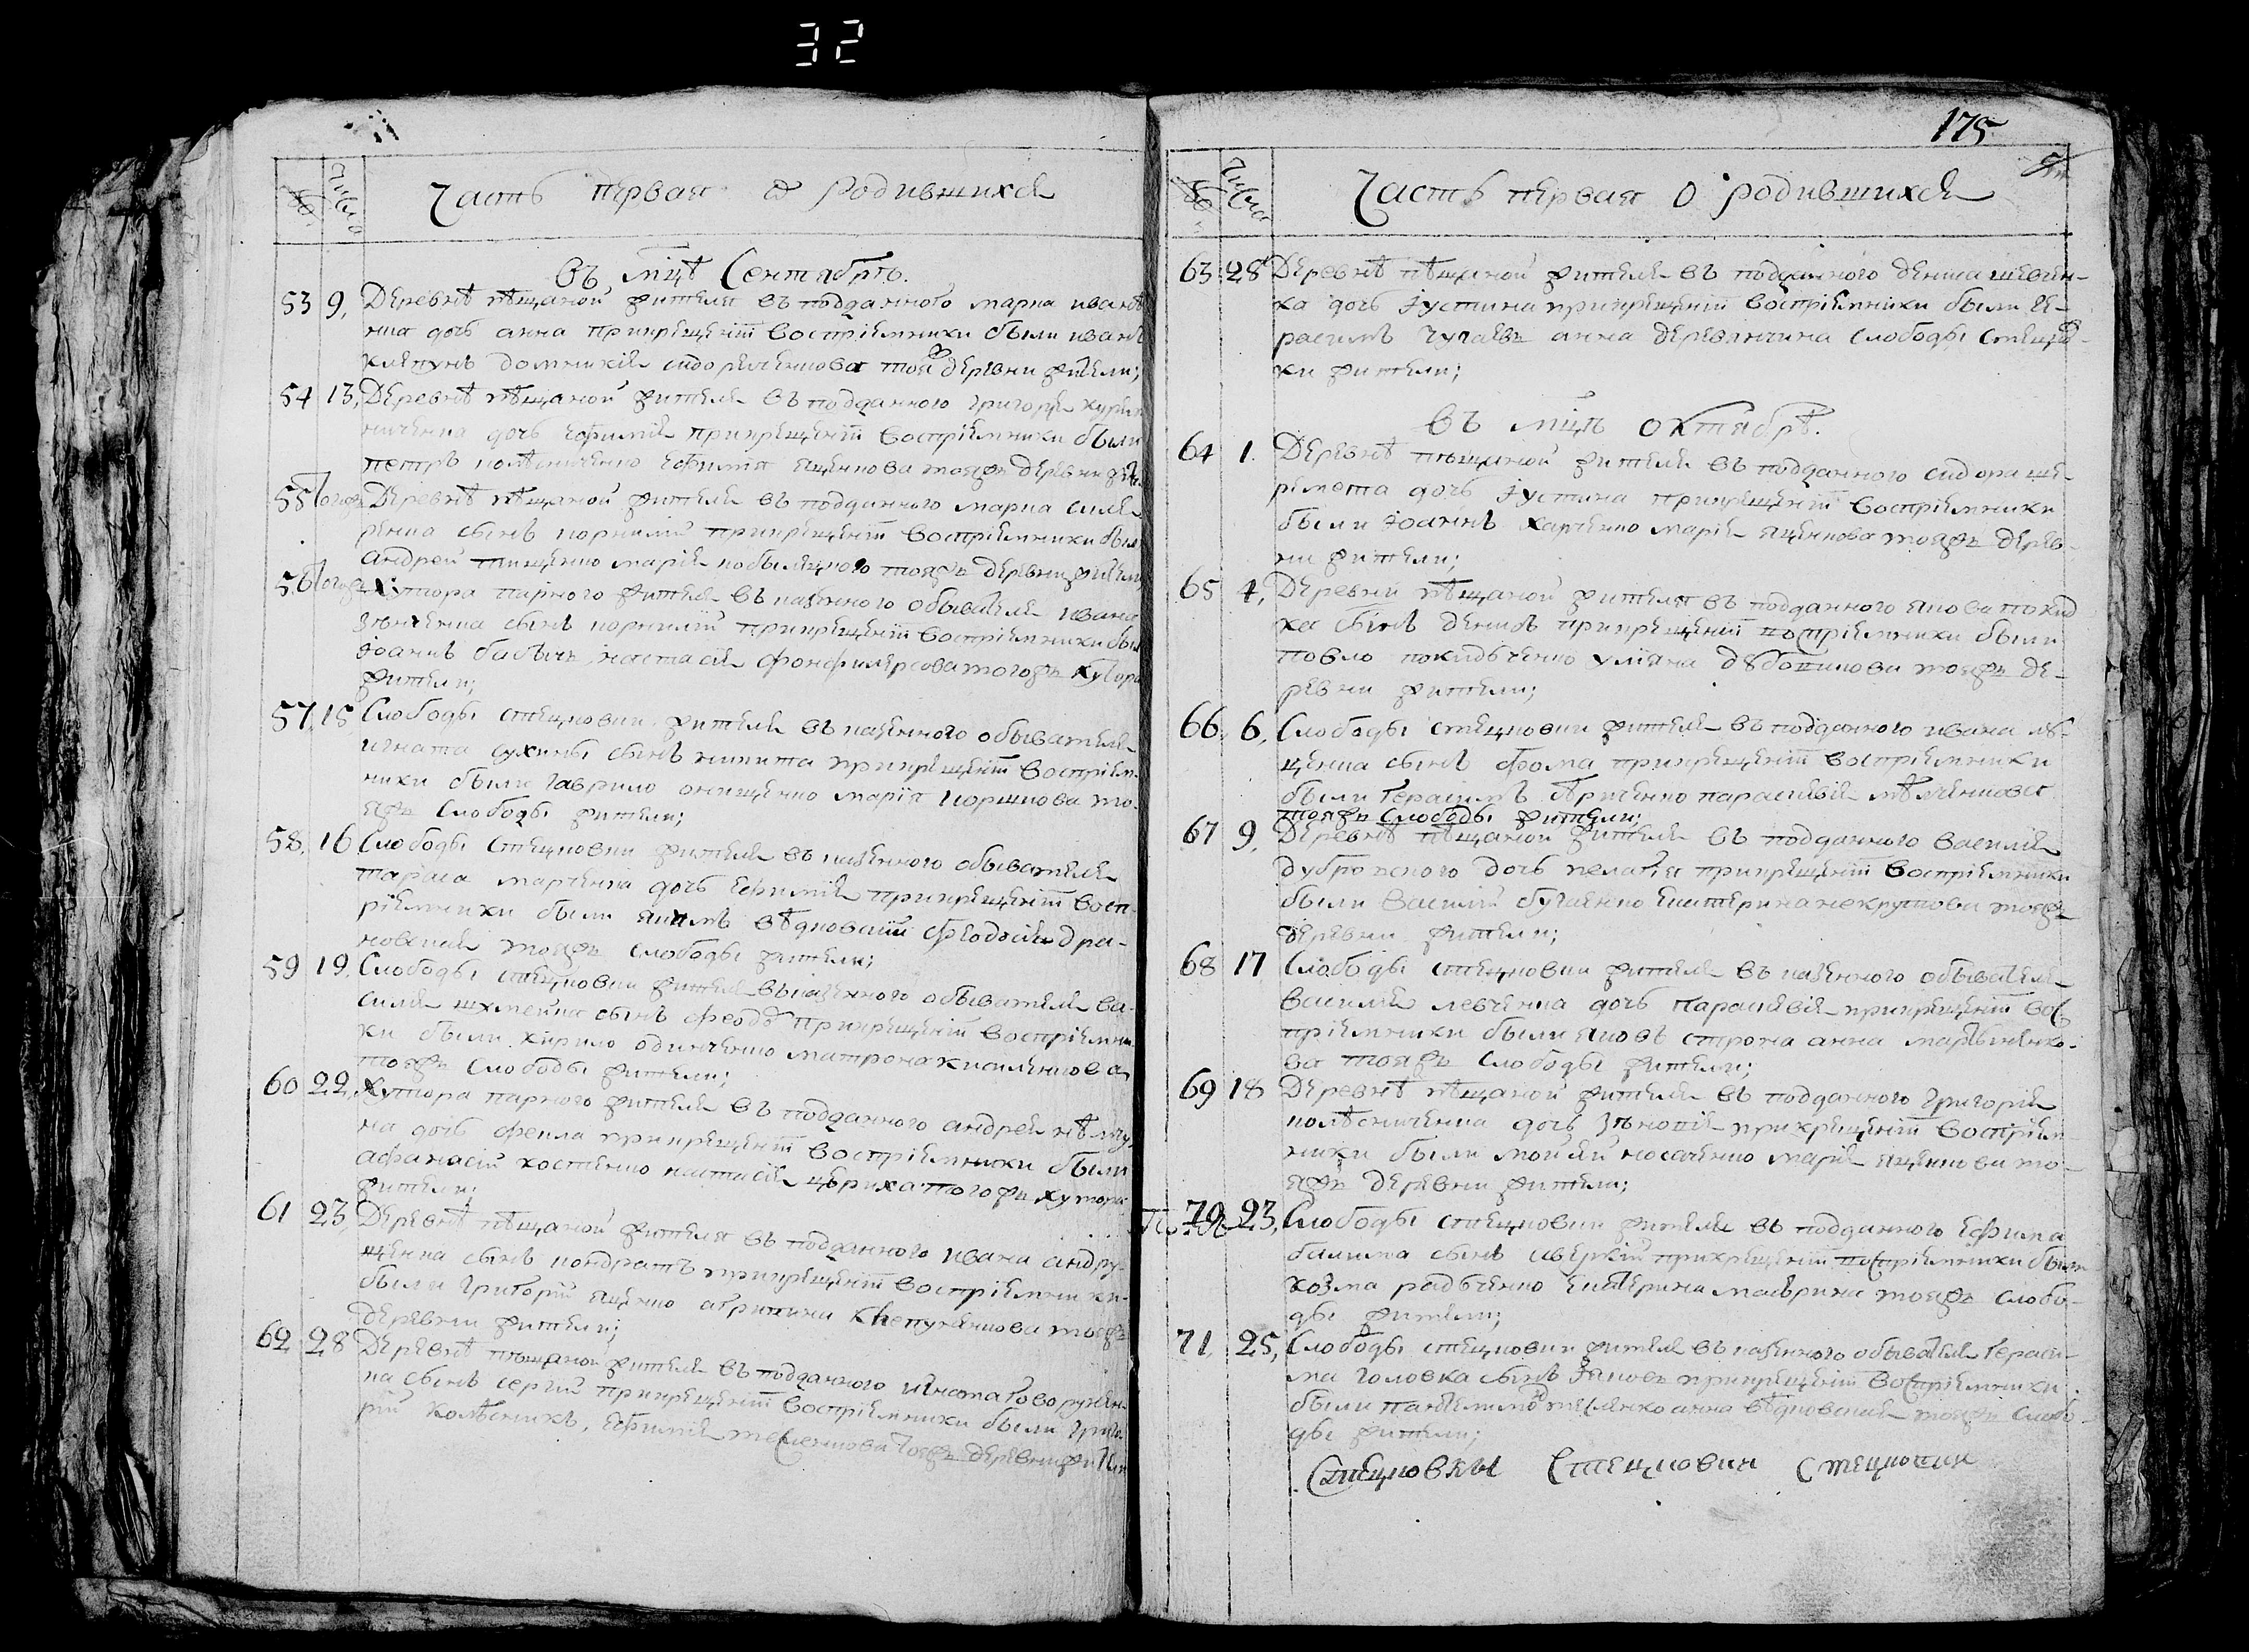 32
Часть первая о родившихся
въ мцѣ Сентябрѣ.
53 9, Деревнѣ пѣщаной жителя въ подданного марка иванѣ
нка дочь анна прикрещеніи воспріемники были иванъ
кляпунъ домникія сидорченкова тояжъ деревни жители;
54 13, Деревнѣ пѣщаной жителя въ подданного григорія
дочь ефимія прикрещеніи воспріемники были
петръ колѣсниченко ефимія яценкова тояжъ деревни
55 тогож Деревнѣ пѣщаной жителя въ подданного марка
сынъ корнилій прикрещеніи воспріемники были
андрей тищенко марія тояжъ деревни жители
56 тогож Хутора парного жителя въ казенного обывателя ивана
зѣнченка сынъ корнилій прикрещеніи воспріемники были
іоаннъ бабичъ настасія тогожъ хутора
жители;
57, 15 Слободы стецковки жителя въ казенного обывателя
игната сухины сынъ никита прикрещеніи воспріем-
ники были гаврило онищенко марія коршкова то-
яжъ Слободы жители;
58, 16 Слободы Стецковки жителя въ казенного обывателя
тараса марченка дочь ефимія прикрещеніи восп-
ріемники были якимъ вѣдновскій феодосія дра-
новская тояжъ слободы жители;
59 19, Слободы стецковки жителя въ казенного обывателя ва-
силія сынъ феодъ прикрещеніи воспріемни
ки были кирило одинченко матрона кисиленкова
тояжъ Слободы жители;
60 22, Хутора парного жителя въ подданного андрея
на дочь фекла прикрещеніи воспріемники были
афанасій костенко настасія тогожъ хутора
жители;
61 23, Деревнѣ пѣщаной жителя въ подданного ивана андру-
щенка сынъ кондратъ прикрещеніи воспріемники
были григорій яценко агрипина клепуненкова тояжъ
деревни жители;
62 28 Деревнѣ пѣщаной жителя въ подданного игната говорухен
ка сынъ сергій прикрещеніи воспріемники были григо-
рій колѣсникъ, ефимія тесленкова тояжъ деревни жители
175
Часть первая о родившихся
63 28 Деревнѣ пѣщаной жителя въ подданного дениса шевчен-
ка дочь іустина прикрещеніи воспріемники были ге-
расимъ чугаевъ анна деревянчина слободы стецков-
ки жители;
въ мцѣ октябрѣ.
64 1. Деревнѣ пѣщаной жителя въ подданного сидора ше-
ремета дочь іустина прикрещеніи воспріемники
были іоаннъ харченко марія яценкова тояжъ дерев-
ни жители;
65 4, Деревни пѣщаной жителя въ подданного якова покид
ка сынъ денисъ прикрещеніи воспріемники были
повло покидченко уліяна тояжъ де-
ревни жители;
66, 6, Слободы стецковки жителя въ подданного ивана лѣ-
ценка сынъ фома прикрещеніи воспріемники
были герасимъ параскевія
тояжъ Слободы жители;
67 9, Деревнѣ пѣщаной жителя въ подданного василія
дубровского дочь пелагія прикрещеніи воспріемники
были василій бугаенко екатерина некрутова тояжъ
деревни жители;
68 17 Слободы стецковки жителя въ казенного обывателя
василія левченка дочь параскевія прикрещеніи вос
пріемники были яковъ строна анна мартыненко-
ва тояжъ слободы жители;
69 18 Деревнѣ пѣщаной жителя въ подданного григорія
колѣсниченка дочь зѣновія прикрещеніи воспріем-
ники были моисей носаченко марія яценкова то-
яжъ деревни жители;
70 23, Слободы стецковки жителя въ подданного ефима
сынъ аверкій прикрещеніи воспріемники были
козма радченко екатерина маврина тояжъ слобо-
ды жители;
71, 25, Слободы стецковки жителя въ казенного обывателя гераси-
ма головка сынъ іяковъ прикрещеніи воспріемники
были пантелимонъ тесленко анна вѣдновская тояжъ слобо-
ды жители;
Стецковки Стецковки Стецковки